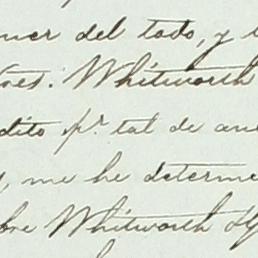 del todo, y
Whitworth
dito pr. tal de
, me he determ
bre Whitworth